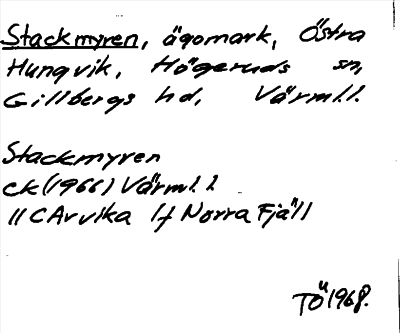 Stackmyren, ägomark, Östra
Hungvik, Högeruds sn,
Gillbergs hd, Värml.l.
Stackmyren
ek (1966) Värml. l
11 C Arvika 1f Norra Fjäll
TÖ 1968.